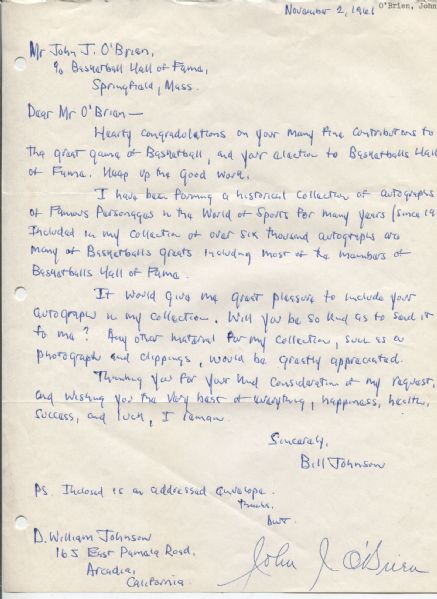 November 2, 1961 O'Brien, John
Mr John J. O'Brien,
c/o Basketball Hall of Fame,
Springfield, Mass.
Dear Mr O'Brien—
Hearty congradulations on your many fine contributions to
the great game of Basketball, and your election to Basketballs Hall
of Fame. Keep up the good work.
I have been forming a historical collection of autographs
of Famous Personages in the World of Sports for many years (since 19
Included in my collection of over six thousand autographs are
many of Basketballs greats including most of the members of
Basketballs Hall of Fame.
It would give me great pleasure to include your
autograph in my collection. Will you be so kind as to send it
to me? Any other material for my collection, such as a
photograph and clippings, would be greatly appreciated.
Thanking you for your kind consideration of my request,
and wishing you the very best of everything, happiness, health,
success, and luck, I remain.
Sincerely,
Bill Johnson
Ps. Inclosed is an addressed envelope.
Thanks,
D. William Johnson
165 East Pamela Road.
Arcadia,
California.
John J O'Brien